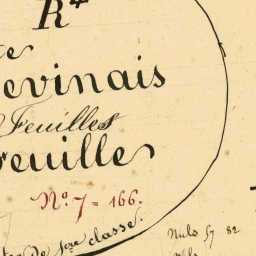 R⁴
te
evinais
Feuilles
feuille
Nº 7 = 166.
de 1ere classe.
Nulo 57 82